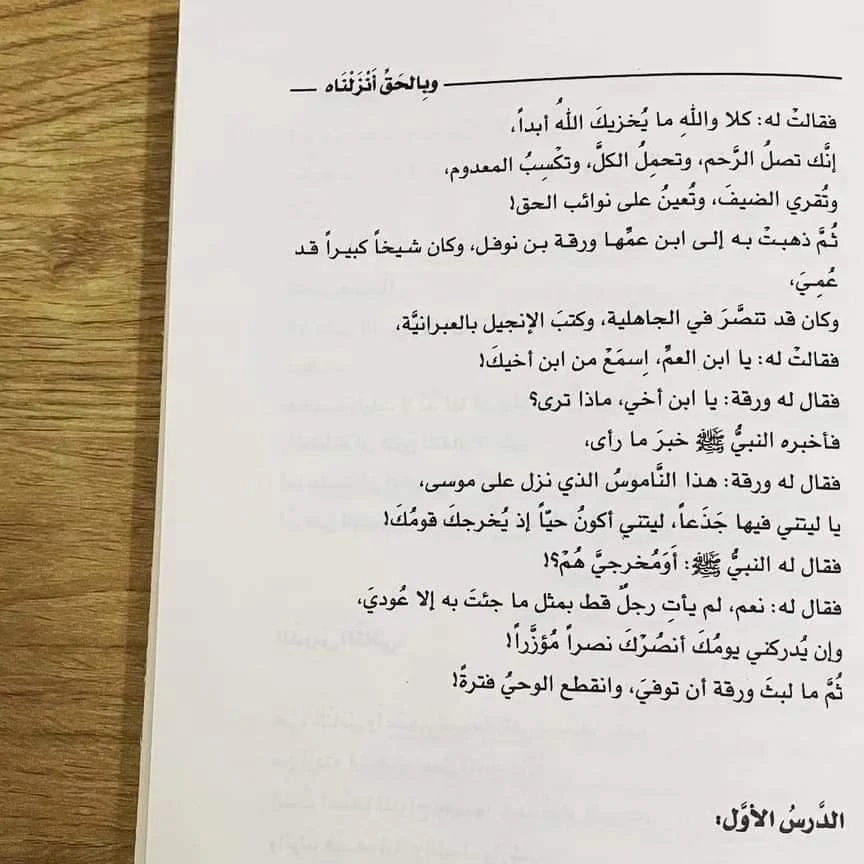 وبِالحَقِّ أَنْزَلْنَاه
فقالتْ له: كلا واللهِ ما يُخزيكَ اللهُ أبداً،
إنَّك تصلُ الرَّحم، وتحمِلُ الكلَّ، وتكْسِبُ المعدوم،
وتُقري الضيفَ، وتُعينُ على نوائب الحق!
ثُمَّ ذهبتْ به إلى ابن عمِّها ورقة بن نوفل، وكان شيخاً كبيراً قد
عُمِيَ،
وكان قد تنصَّرَ في الجاهلية، وكتبَ الإنجيل بالعبرانيَّة،
فقالتْ له: يا ابن العمِّ، اِسمَعْ من ابن أخيكَ!
فقال له ورقة: يا ابن أخي، ماذا ترى؟
فأخبره النبيُّ ﷺ خبرَ ما رأى،
فقال له ورقة: هذا النَّاموسُ الذي نزل على موسى،
يا ليتني فيها جَذَعاً، ليتني أكونُ حيّاً إذ يُخرجكَ قومُكَ!
فقال له النبيُّ ﷺ: أوَمُخرجيَّ هُمْ؟!
فقال له: نعم، لم يأتِ رجلٌ قط بمثل ما جئتَ به إلا عُوديَ،
وإن يُدركني يومُكَ أنصُرْكَ نصراً مُؤزَّراً!
ثُمَّ ما لبثَ ورقة أن توفيَ، وانقطع الوحيُ فترةً!
الدَّرسُ الأوَّل: